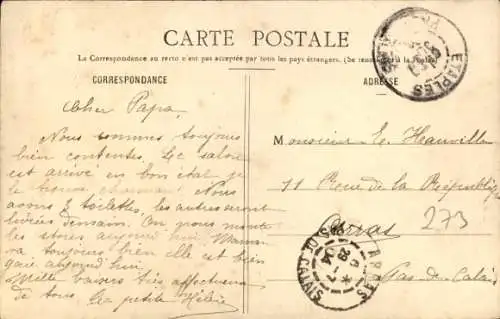 CARTE POSTALE
La Correspondance au recto n'est pas acceptée par tous les pays étrangers. (Se renseigner à la Poste)
CORRESPONDANCE
ADRESSE
ETAPLES
Cher Papa,
Nous sommes toujours
bien contentes. Le salon
est arrivé en bon état je
le trouve charmant. Nous
avons 2 toilettes, les autres seront
livrées demain. On pose
les stores aujourd'hui. Maman
va toujours bien elle est bien
gaie aujourd'hui
Mille baisers très affectueux
de tous. La petite Hélène
Monsieur
11 Rue de la République
Arras
273
Pas-de-Calais
ARRAS
PAS DE CALAIS